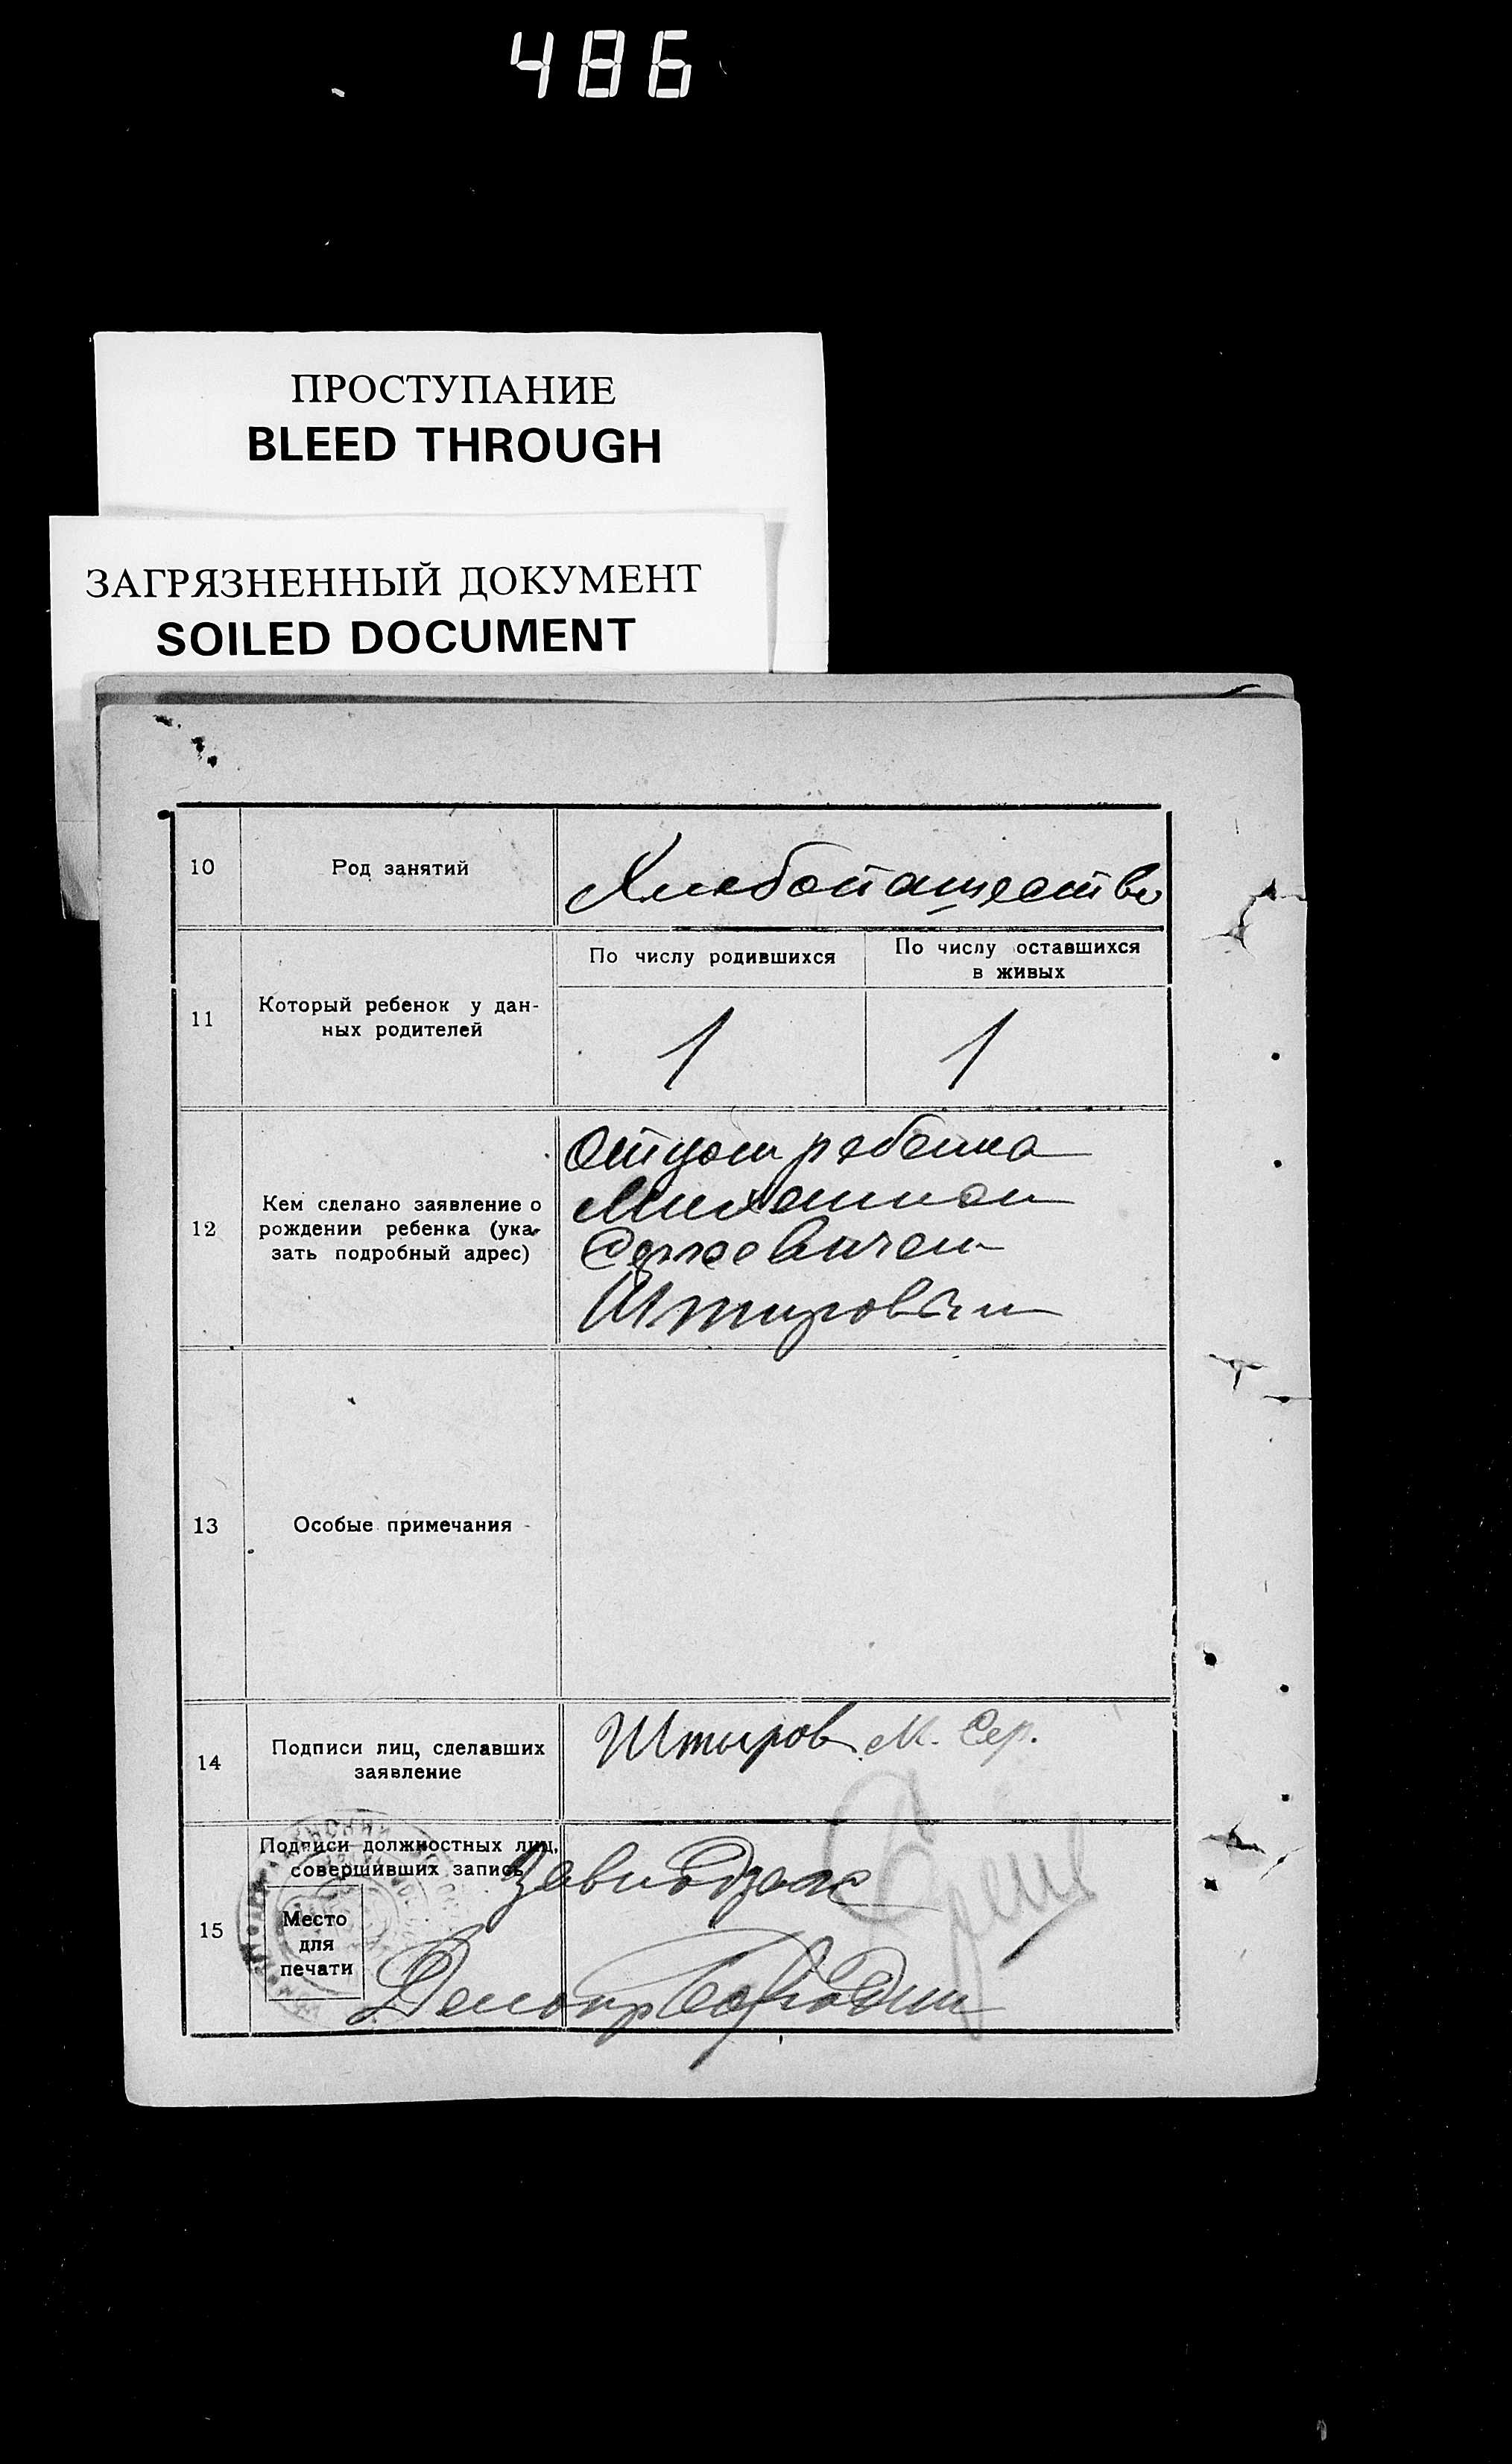 486
ПРОСТУПАНИЕ
BLEED THROUGH
ЗАГРЯЗНЕННЫЙ ДОКУМЕНТ
SOILED DOCUMENT
10
Род занятий
Хлебопашество
11
Который ребенок у дан-
ных родителей
По числу родившихся
По числу оставшихся
в живых
1
1
12
Кем сделано заявление о
рождении ребенка (ука-
зать подробный адрес)
Отцом ребенка
Михаилом
Сергеевичем
Штыровым
13
Особые примечания
14
Подписи лиц, сделавших
заявление
Штыров М. Сер.
15
Подписи должностных лиц,
совершивших запись
Место
для
печати
Завподзагс
Делопр